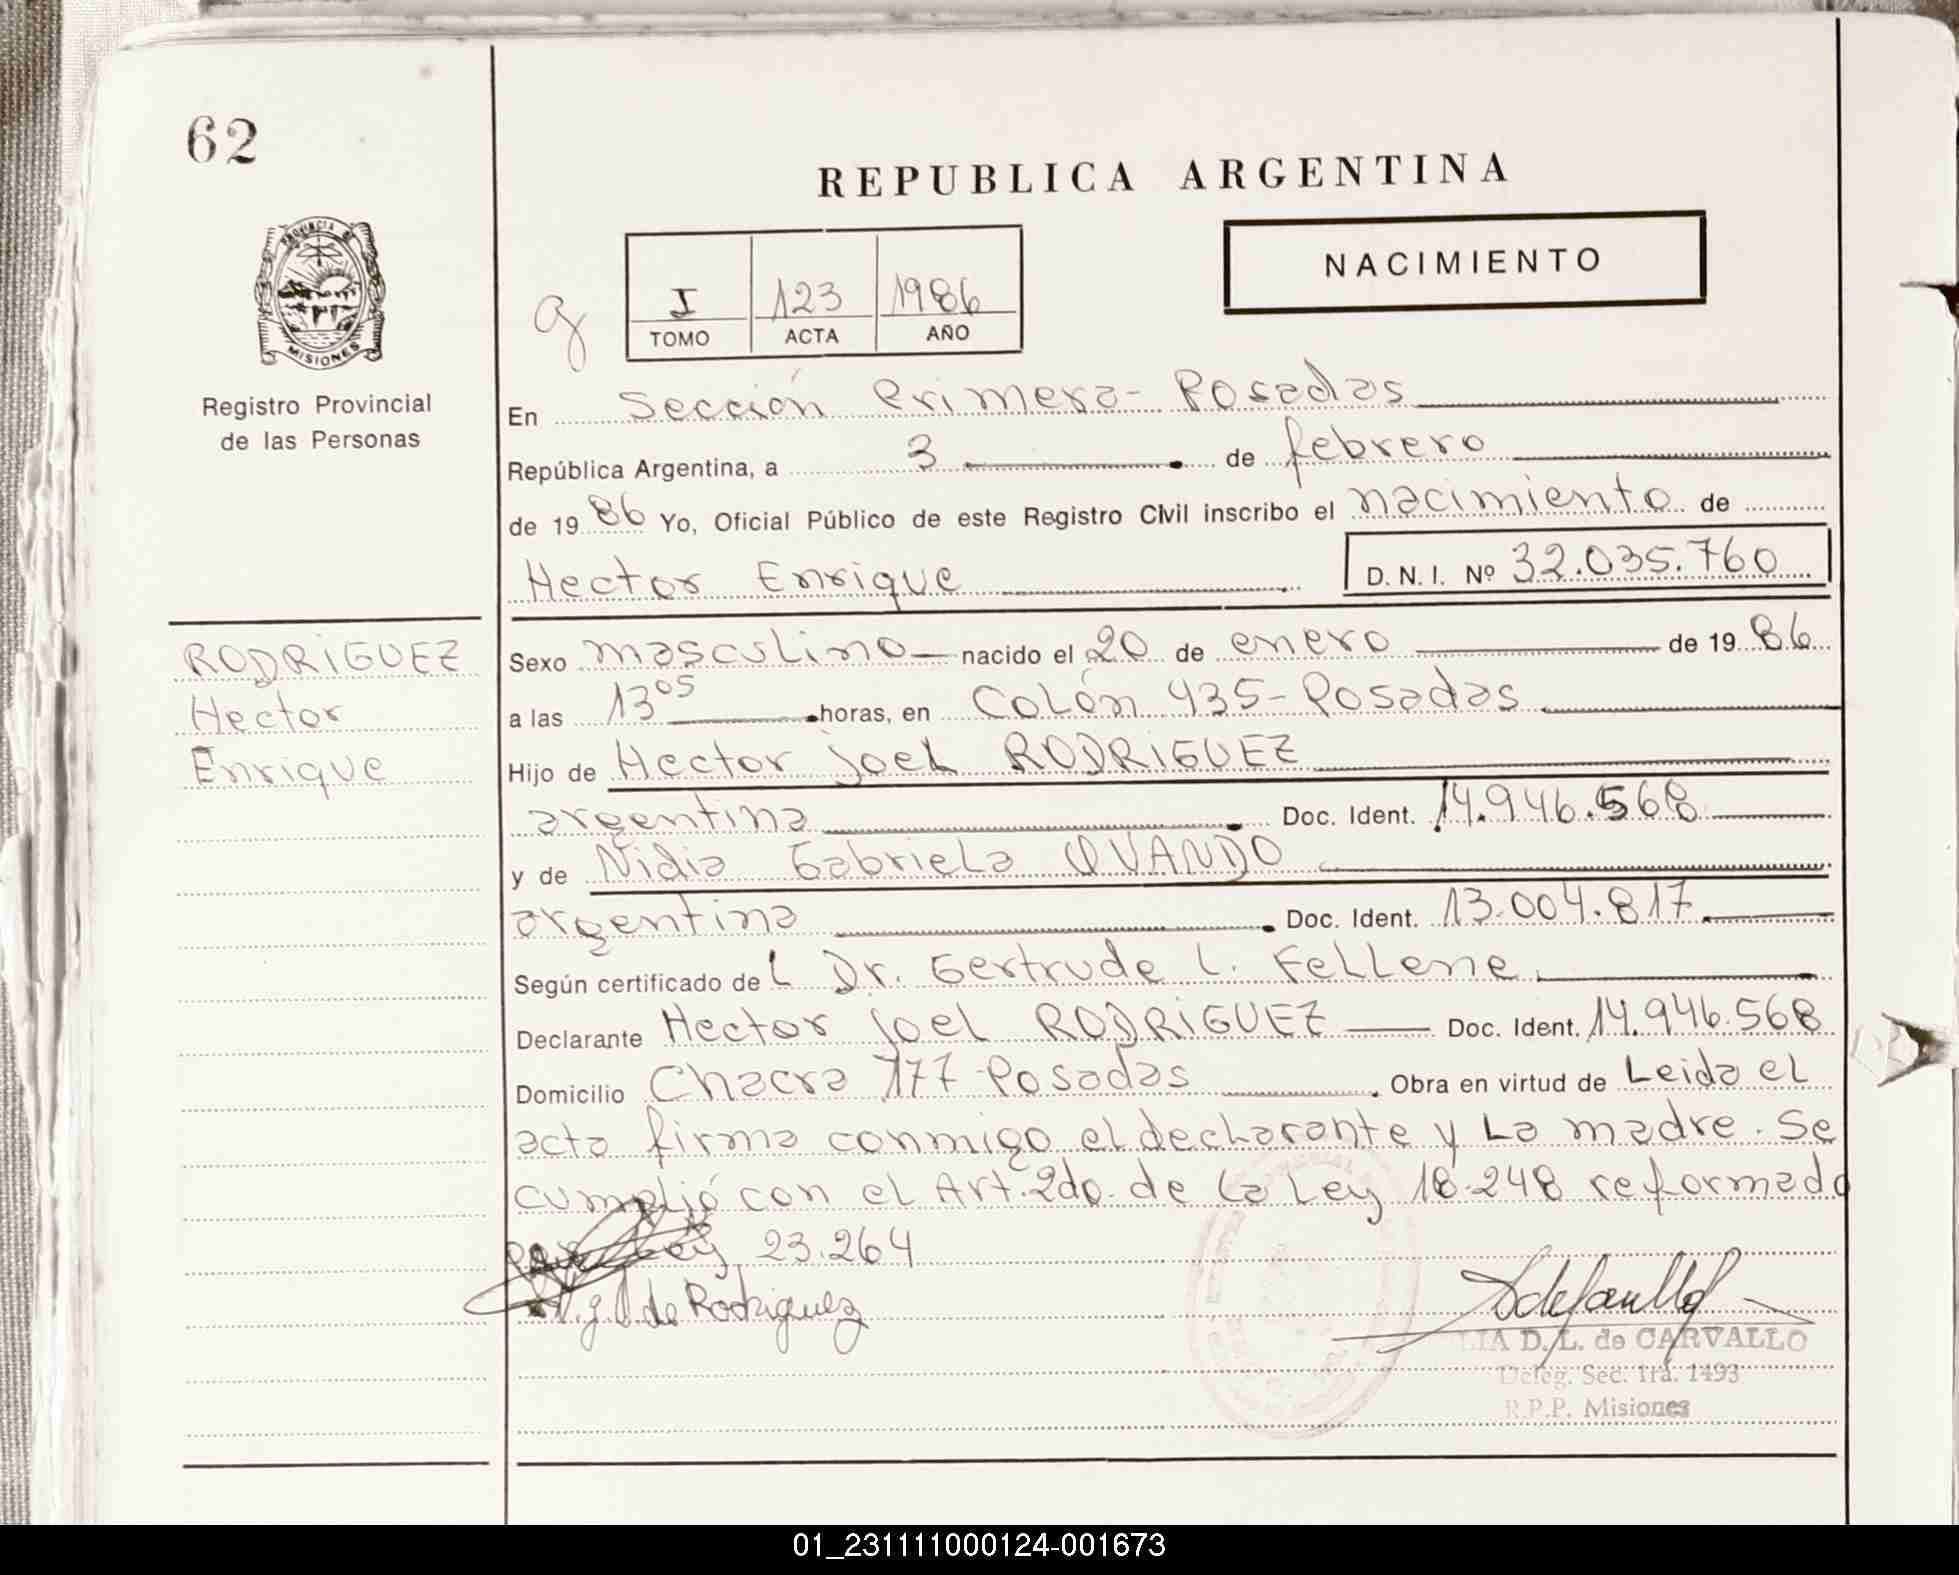 62
REPUBLICA ARGENTINA
NACIMIENTO
PROVINCIA DE
MISIONES
Registro Provincial
de las Personas
g
I 123 1986
TOMO ACTA AÑO
En Sección Primera - Posadas
República Argentina, a 3 de febrero
de 1986 Yo, Oficial Público de este Registro Civil inscribo el nacimiento de
Hector Enrique D.N.I. Nº 32.035.760
RODRIGUEZ
Hector
Enrique
Sexo masculino nacido el 20 de enero de 1986
a las 13 05 horas, en Colón 435 - Posadas
Hijo de Hector Joel RODRIGUEZ
argentina Doc. Ident. 14.946.568
y de Nidia Gabriela OVANDO
argentina Doc. Ident. 13.004.817
Según certificado del Dr. Gertrude L. Fellene
Declarante Hector Joel RODRIGUEZ Doc. Ident. 14.946.568
Domicilio Chacra 177 - Posadas Obra en virtud de Leida el
acta firma conmigo el declarante y La madre. Se
cumplió con el Art. 2do. de la Ley 18.248 reformado
por Ley 23.264
N.g.O de Rodriguez
LIA D. L. de CARVALLO
Deleg. Sec. 1ra. 1493
R.P.P. Misiones
01_231111000124-001673